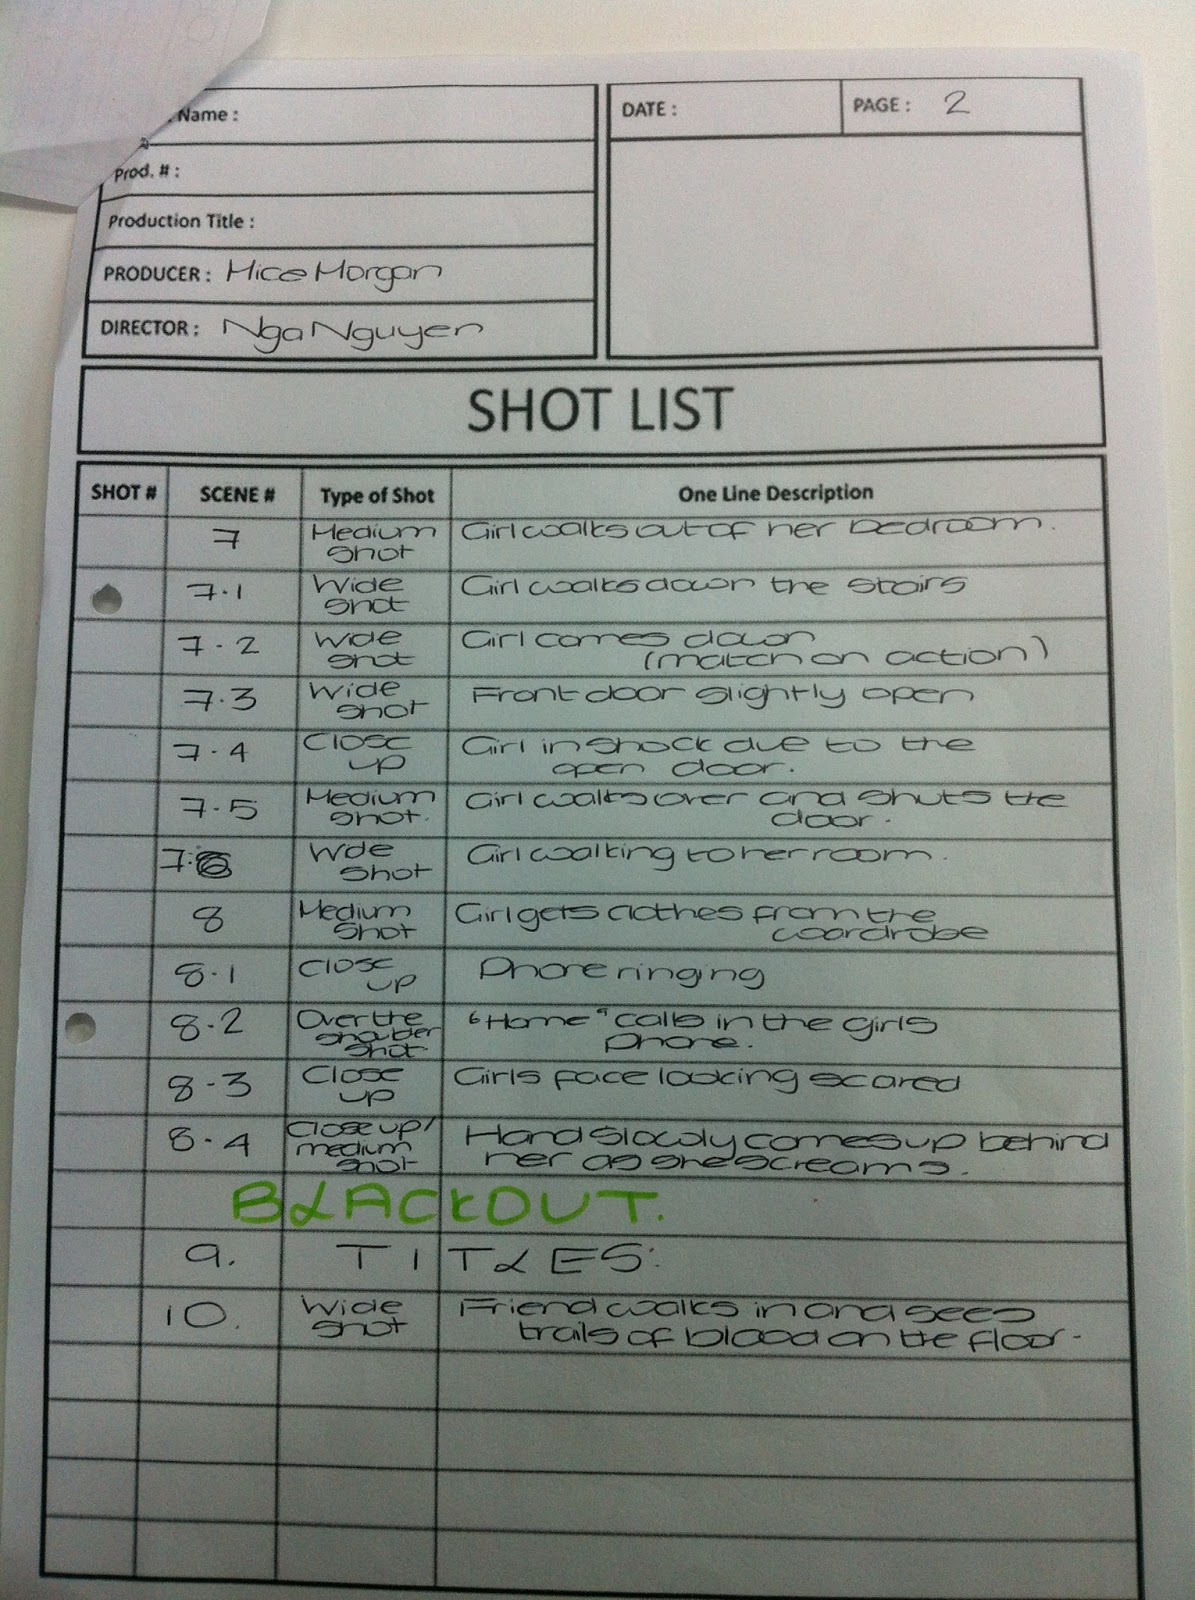 Name :
DATE :
PAGE : 2
Prod. # :
Production Title :
PRODUCER : Alice Morgan
DIRECTOR : Nga Nguyen
SHOT LIST
SHOT # SCENE # Type of Shot One Line Description
7 Medium Shot Girl walks out of her bedroom.
7.1 Wide shot Girl walks down the stairs
7.2 Wide shot Girl comes down (match on action)
7.3 Wide shot Front door slightly open
7.4 Close up Girl in shock due to the open door.
7.5 Medium shot. Girl walks over and shuts the door.
7.6 Wide shot Girl walking to her room.
8 Medium shot Girl gets clothes from the wardrobe
8.1 Close up Phone ringing
8.2 Over the shoulder shot "Home" calls in the girls phone.
8.3 Close up Girls face looking scared
8.4 Close up/ medium shot Hand slowly comes up behind her as she screams.
BLACKOUT.
9. TITLES:
10. Wide shot Friend walks in and sees trails of blood on the floor.